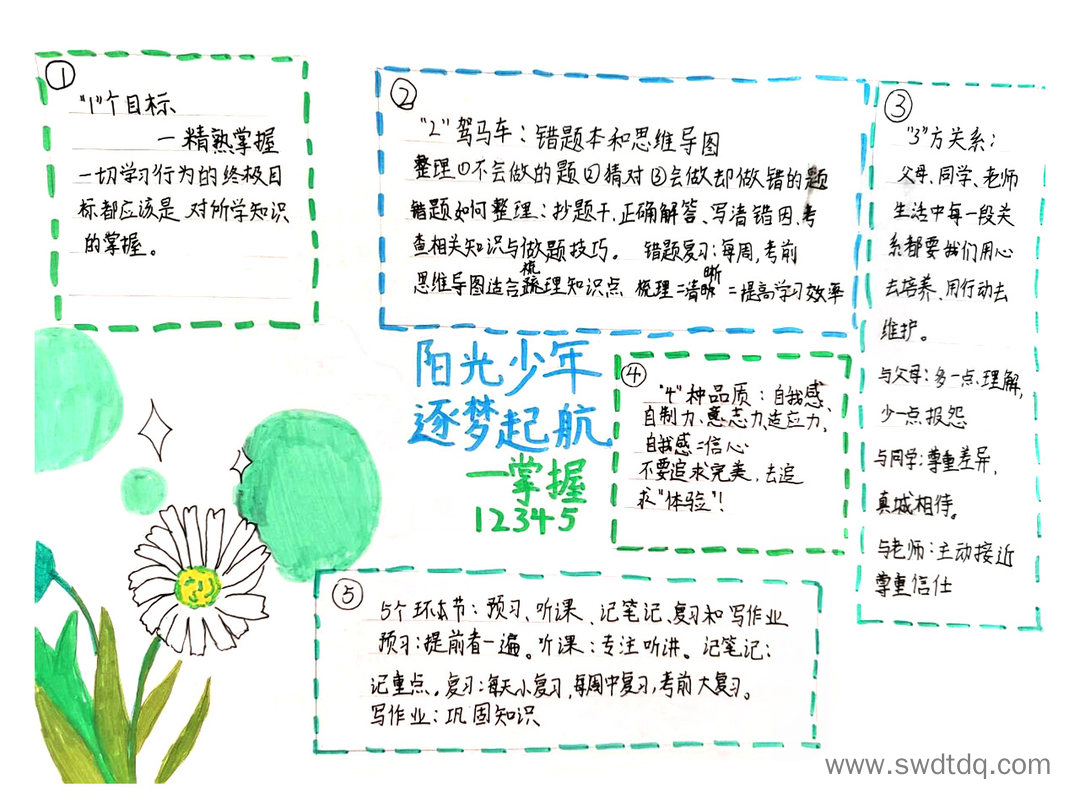 ①
"1"个目标
—精熟掌握
一切学习行为的终极目
标都应该是对所学知识
的掌握。
②
"2"驾马车：错题本和思维导图
整理①不会做的题②猜对③会做却做错的题
错题如何整理：抄题干，正确解答、写清错因、考
查相关知识与做题技巧。 错题复习：每周，考前
思维导图适合梳理知识点 梳理=清晰=提高学习效率
③
"3"方关系：
父母、同学、老师
生活中每一段关
系都要我们用心
去培养、用行动去
维护。
与父母：多一点理解，
少一点报怨
与同学：尊重差异，
真城相待。
与老师：主动接近
尊重信任
阳光少年
逐梦起航
一掌握
12345
④
"4"种品质：自我感、
自制力、意志力、适应力，
自我感=信心
不要追求完美，去追
求"体验"！
⑤
5个环本节：预习、听课、记笔记、复习和写作业
预习：提前看一遍。听课：专注听讲。记笔记：
记重点。复习：每天小复习，每周中复习，考前大复习。
写作业：巩固知识
www.swdtdq.com